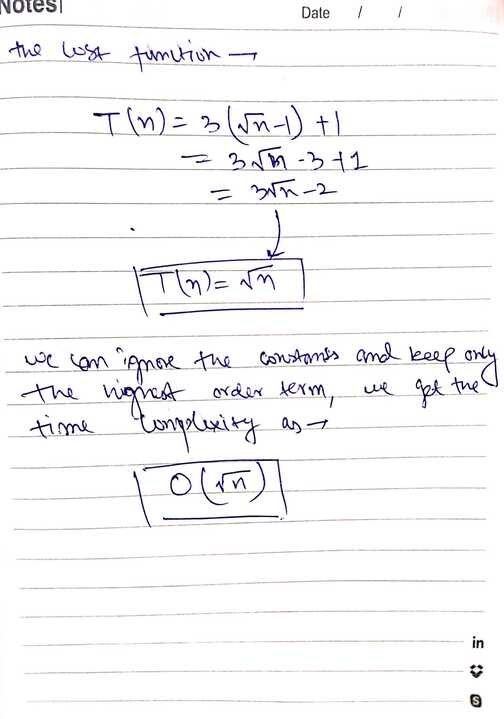 Notes
Date / /
the cost function →
T(n) = 3(√n-1) +1
= 3√n -3 +1
= 3√n -2
T(n) = √n
we can ignore the constants and keep only
the highest order term, we get the
time complexity as →
O(√n)
in
S